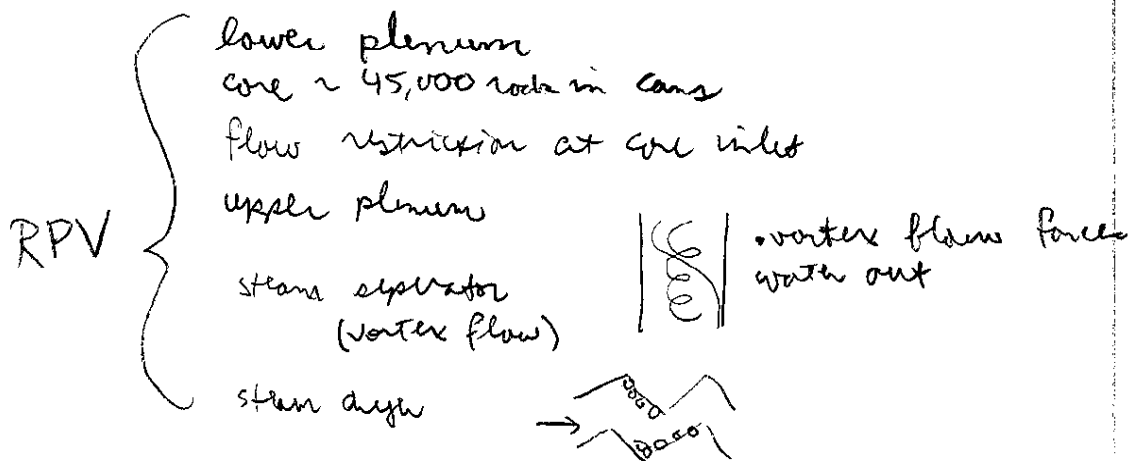 lower plenum
core ~ 45,000 rods in cans
flow restriction at core inlet
upper plenum
RPV
steam seperator
(vortex flow)
• vortex flow forces
water out
steam dryer